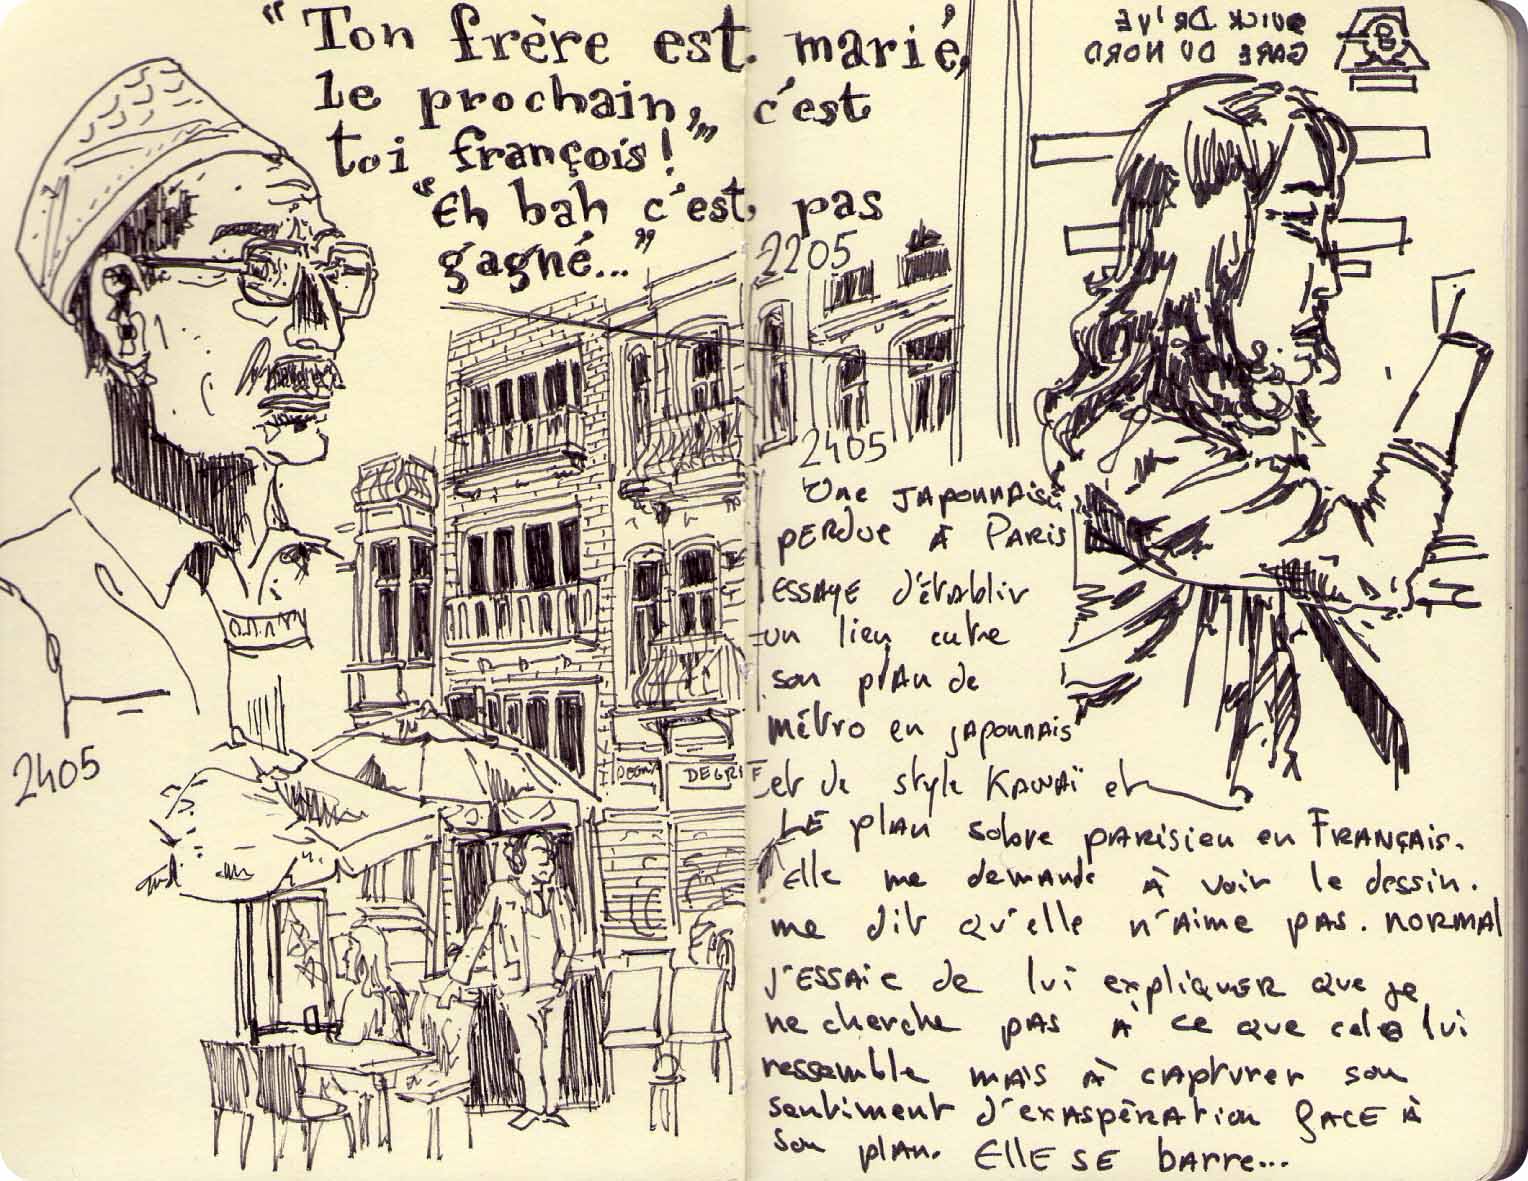 “Ton frère est marié,
le prochain, c'est
toi françois!”
“Eh bah c'est pas
gagné...”
QUICK DRIVE
GARE DU NORD
2205
2405
2405
Une JAPONNAISE
PERDUE À PARIS
ESSAYE d'établir
un lien entre
son plan de
métro en japonnais
et de style KAWAÏ et
LE plan sobre parisien en FRANÇAIS.
Elle me demande À voir le dessin.
me dit qu'elle n'aime pas. NORMAL
J'ESSAIE de lui expliquer que je
ne cherche pas À ce que cela lui
ressemble mais à capturer son
sentiment d'exaspération face à
son plan. ELLE SE barre...
DEGRIF